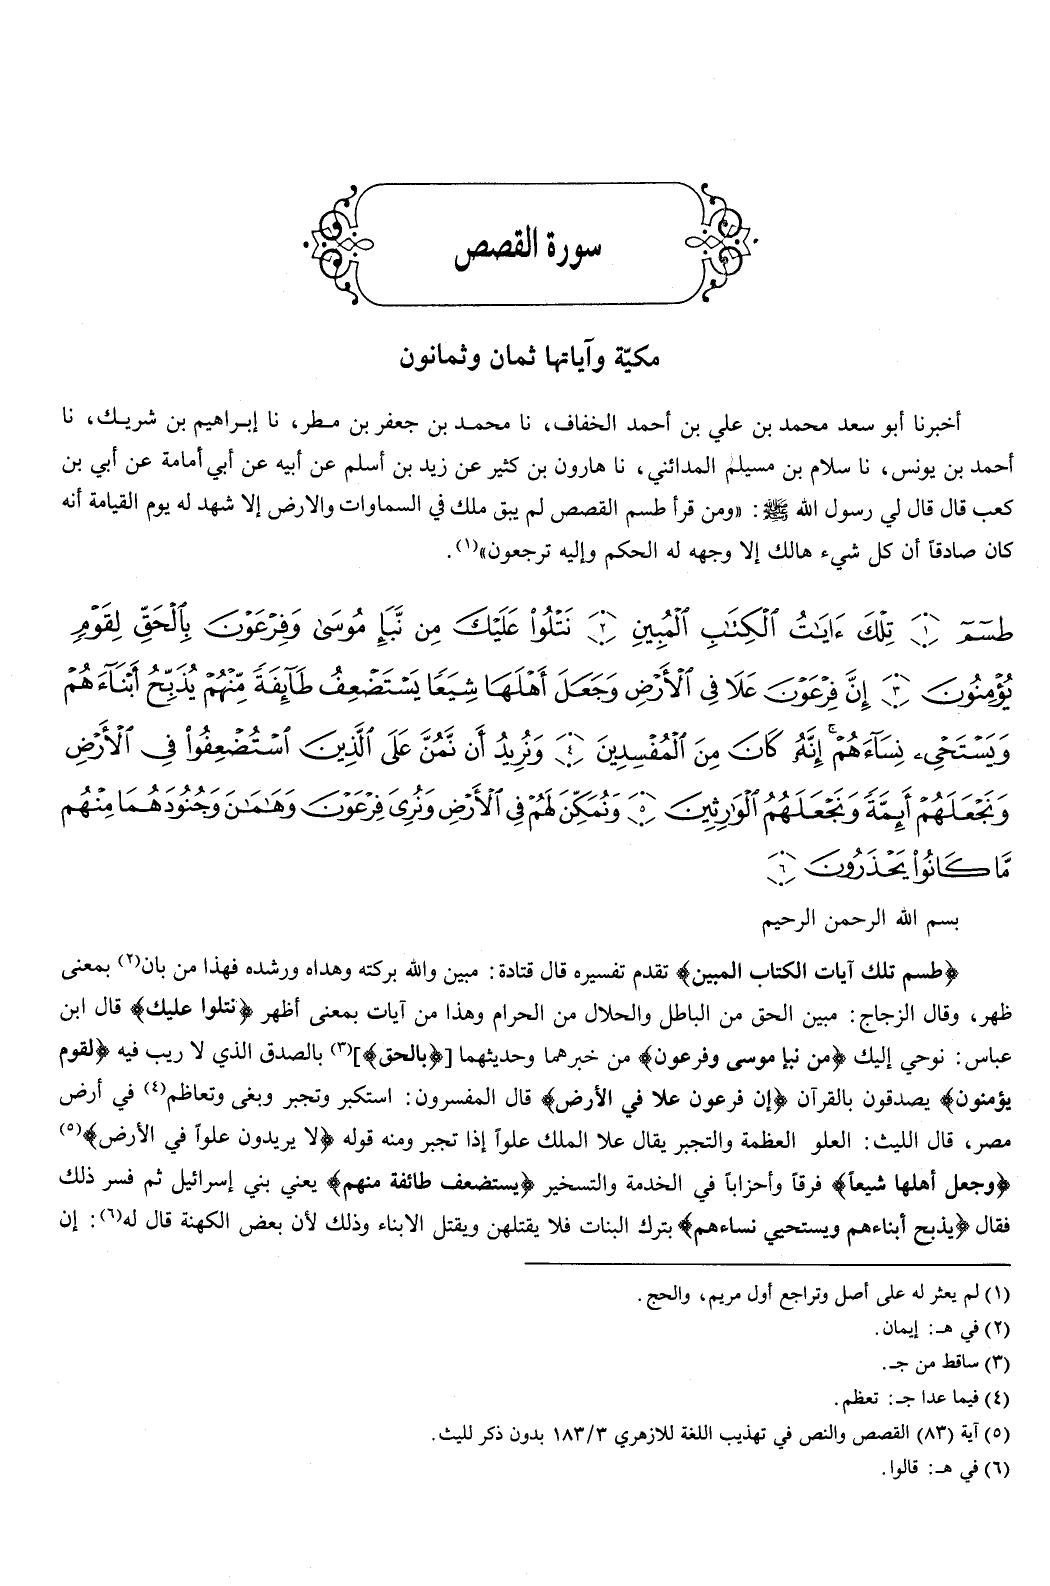 سورة القصص
مكيّة وآياتها ثمان وثمانون
أخبرنا أبو سعد محمد بن علي بن أحمد الخفاف، نا محمد بن جعفر بن مطر، نا إبراهيم بن شريك، نا
أحمد بن يونس، نا سلام بن مسيلم المدائني، نا هارون بن كثير عن زيد بن أسلم عن أبيه عن أبي أمامة عن أبي بن
كعب قال قال لي رسول الله ﷺ: «ومن قرأ طسم القصص لم يبق ملك في السماوات والارض إلا شهد له يوم القيامة أنه
كان صادقاً أن كل شيء هالك إلا وجهه له الحكم وإليه ترجعون»(١).
طسٓمٓ ١ تِلْكَ ءَايَٰتُ ٱلْكِتَٰبِ ٱلْمُبِينِ ٢ نَتْلُوا۟ عَلَيْكَ مِن نَّبَإِ مُوسَىٰ وَفِرْعَوْنَ بِٱلْحَقِّ لِقَوْمٍ
يُؤْمِنُونَ ٣ إِنَّ فِرْعَوْنَ عَلَا فِى ٱلْأَرْضِ وَجَعَلَ أَهْلَهَا شِيَعًا يَسْتَضْعِفُ طَآئِفَةً مِّنْهُمْ يُذَبِّحُ أَبْنَآءَهُمْ
وَيَسْتَحْىِۦ نِسَآءَهُمْ ۚ إِنَّهُۥ كَانَ مِنَ ٱلْمُفْسِدِينَ ٤ وَنُرِيدُ أَن نَّمُنَّ عَلَى ٱلَّذِينَ ٱسْتُضْعِفُوا۟ فِى ٱلْأَرْضِ
وَنَجْعَلَهُمْ أَئِمَّةً وَنَجْعَلَهُمُ ٱلْوَٰرِثِينَ ٥ وَنُمَكِّنَ لَهُمْ فِى ٱلْأَرْضِ وَنُرِىَ فِرْعَوْنَ وَهَٰمَٰنَ وَجُنُودَهُمَا مِنْهُم
مَّا كَانُوا۟ يَحْذَرُونَ ٦
بسم الله الرحمن الرحيم
﴿طسم تلك آيات الكتاب المبين﴾ تقدم تفسيره قال قتادة: مبين والله بركته وهداه ورشده فهذا من بان(٢) بمعنى
ظهر، وقال الزجاج: مبين الحق من الباطل والحلال من الحرام وهذا من آيات بمعنى أظهر ﴿نتلوا عليك﴾ قال ابن
عباس: نوحي إليك ﴿من نبإ موسى وفرعون﴾ من خبرهما وحديثهما [﴿بالحق﴾](٣) بالصدق الذي لا ريب فيه ﴿لقوم
يؤمنون﴾ يصدقون بالقرآن ﴿إن فرعون علا في الأرض﴾ قال المفسرون: استكبر وتجبر وبغى وتعاظم(٤) في أرض
مصر، قال الليث: العلو العظمة والتجبر يقال علا الملك علواً إذا تجبر ومنه قوله ﴿لا يريدون علواً في الأرض﴾(٥)
﴿وجعل أهلها شيعاً﴾ فرقاً وأحزاباً في الخدمة والتسخير ﴿يستضعف طائفة منهم﴾ يعني بني إسرائيل ثم فسر ذلك
فقال ﴿يذبح أبناءهم ويستحيي نساءهم﴾ بترك البنات فلا يقتلهن ويقتل الابناء وذلك لأن بعض الكهنة قال له(٦): إن
(١) لم يعثر له على أصل وتراجع أول مريم، والحج.
(٢) في هـ: إيمان.
(٣) ساقط من جـ.
(٤) فيما عدا جـ: تعظم.
(٥) آية (٨٣) القصص والنص في تهذيب اللغة للازهري ١٨٣/٣ بدون ذكر لليث.
(٦) في هـ: قالوا.